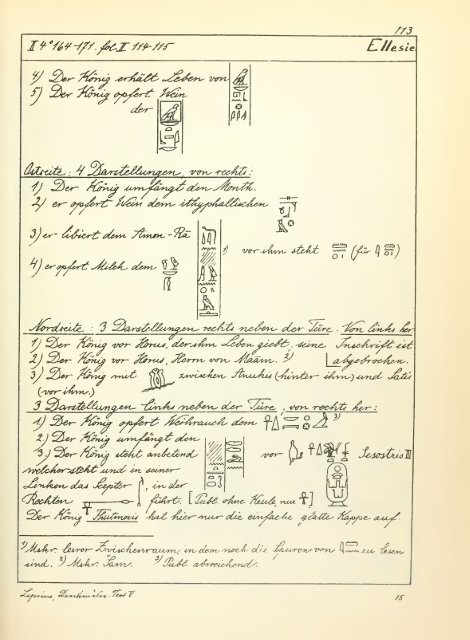 113
II 4° 164-171. fol. I 114-115
Ellesie.
4) Der König erhält Leben von
5) Der König opfert Wein
der
Ostseite: 4 Darstellungen, von rechts:
1) Der König umfängt den Month.
2) er opfert Wein dem ithyphallischen
3) er libiert dem Amon-Rā
1) vor ihm steht (für )
4) er opfert Milch dem
Nordseite: 3 Darstellungen rechts neben der Türe. Von links her
1) Der König vor Horus, der ihm Leben giebt, seine Inschrift ist
2) Der König vor Horus, Herrn von Meām. 2) abgebrochen.
3) Der König mit zwischen Anukis (hinter ihm) und Satis
(vor ihm)
3 Darstellungen links neben der Türe, von rechts her:
1) Der König opfert Weihrauch dem 3)
2) Der König umfängt den
3) Der König steht anbetend vor Sesostris III
welcher steht und in seiner
Linken das Scepter, in der
Rechten führt. [Publ. ohne Keule, nur ]
Der König Thutmosis hat hier nur die einfache glatte Kappe auf.
1) Mskr. leerer Zwischenraum, in dem noch die Spuren von zu lesen
sind. 2) Mskr. 3) Publ. abweichend.
Lepsius, Denkmäler. Text V
15